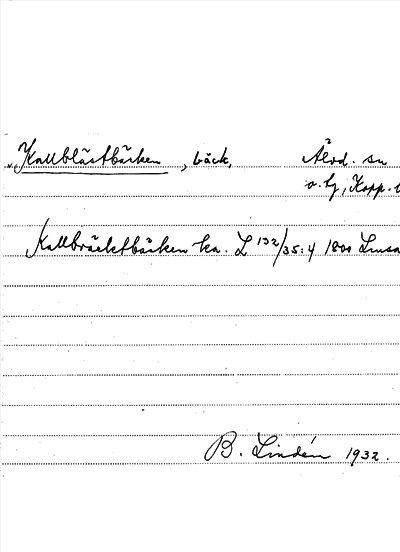 Kallblästbäcken, bäck, Älvd. sn
o. hj, Kopp. l
Kallbräcktbäcken ka. L 132/35:4 1800 Lmsa
B. Lindén 1932.